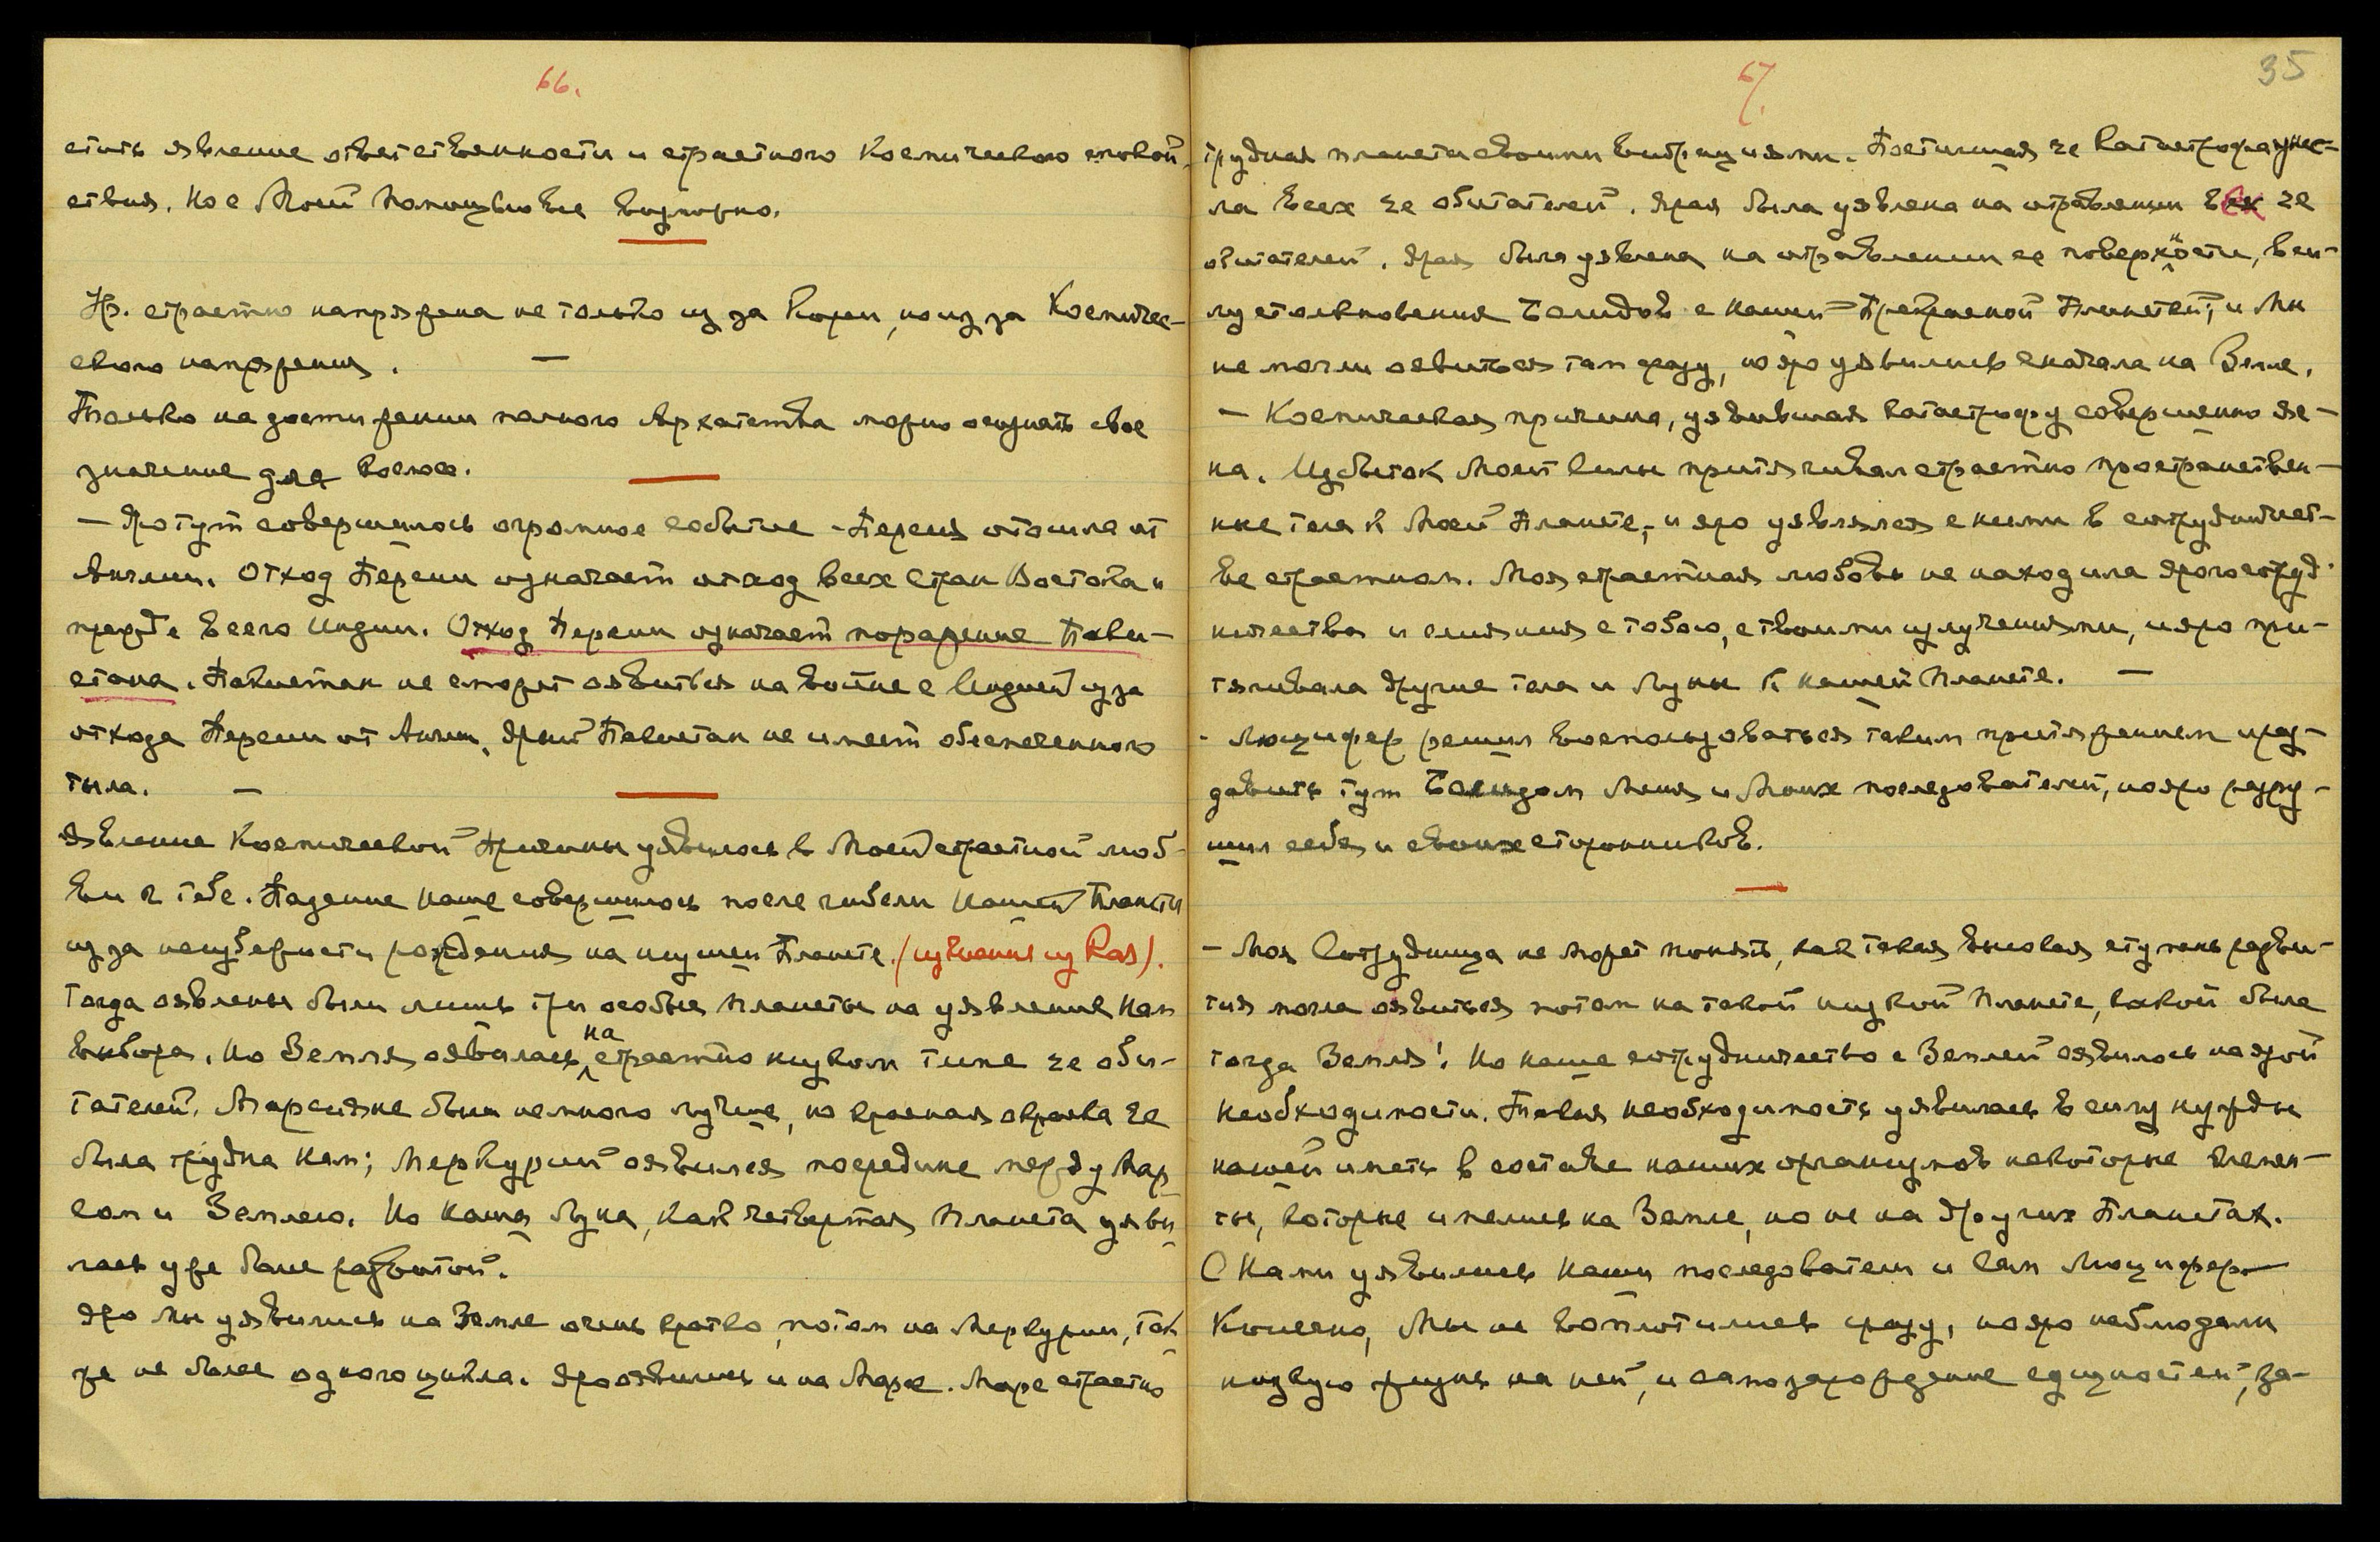 66.
стить явление ответственности и страстного Космического спокой-
ствия. Но с Моей Помощью все возможно.
Ур. страстно напряжена не только из за Кореи, но из за Космичес-
кого напряжения. —
Только на достижении полного Архатства можно осознать свое
значение для Космоса.
— Яро тут совершилось огромное событие - Персия отошла от
Англии. Отход Персии означает отход всех стран Востока и
прежде всего Индии. Отход Персии означает поражение Паки-
стана. Пакистан не сможет оявиться на войне с Индией из за
отхода Персии от Англии. Ярый Пакистан не имеет обеспеченного
тыла. —
Явление Космической Причины уявилось в Моей страстной люб-
ви к тебе. Падение наше совершилось после гибели нашей Планеты
из за неизбежности рождения на низшей Планете. (изгнания из Рая).
Тогда оявлены были лишь три особые планеты на уявление Нам
выбора. Но Земля оявилась на страстно низком типе ее оби-
тателей. Марсияне были немного лучше, но красная окраска ее
была трудна нам; Меркурий оявился посредине между Мар-
сом и Землею. Но наша Луна, как четвертая планета уяви-
лась уже более развитой.
Яро мы уявились на Земле очень кратко, потом на Меркурии, так
же не более одного цикла. Яро оявились и на Марсе. Марс страстно
67.
35
трудная планета своими вибрациями. Постигшая ее Катастрофа унес-
ла всех ее обитателей. Ярая была уявлена на отравлении всех ее
обитателей. Ярая была уявлена на отравлении ее поверхности, в си-
лу столкновения Болидов с нашей Прекрасной Планетой, и Мы
не могли оявиться там сразу, но яро уявились сначала на Земле.
— Космическая причина, уявившая катастрофу совершенно яс-
на. Избыток Моей Силы притягивал страстно пространствен-
ные тела к Моей Планете, и яро уявлялся с ними в сотрудничест-
ве страстном. Моя страстная любовь не находила ярого сотруд-
ничества и слияния с тобою, с твоими излучениями, и яро при-
тягивала другие тела и Луны к нашей Планете. —
- Люцифер решил воспользоваться таким притяжением и раз-
давить тут Болидом Меня и Моих последователей, но яро разру-
шил себя и своих сторонников.
— Моя Сотрудница не может понять, как такая высокая ступень разви-
тия могла оявиться потом на такой низкой Планете, какой была
тогда Земля! Но наше сотрудничество с Землей оявилось на ярой
необходимости. Такая необходимость уявилась в силу нужды
нашей иметь в составе наших организмов некоторые элемен-
ты, которые имелись на Земле, но не на других Планетах.
С Нами уявились наши последователи и Сам Люцифер. —
Конечно, Мы не воплотились сразу, но яро наблюдали
низкую жизнь на ней, и самозарождение единостей, за-